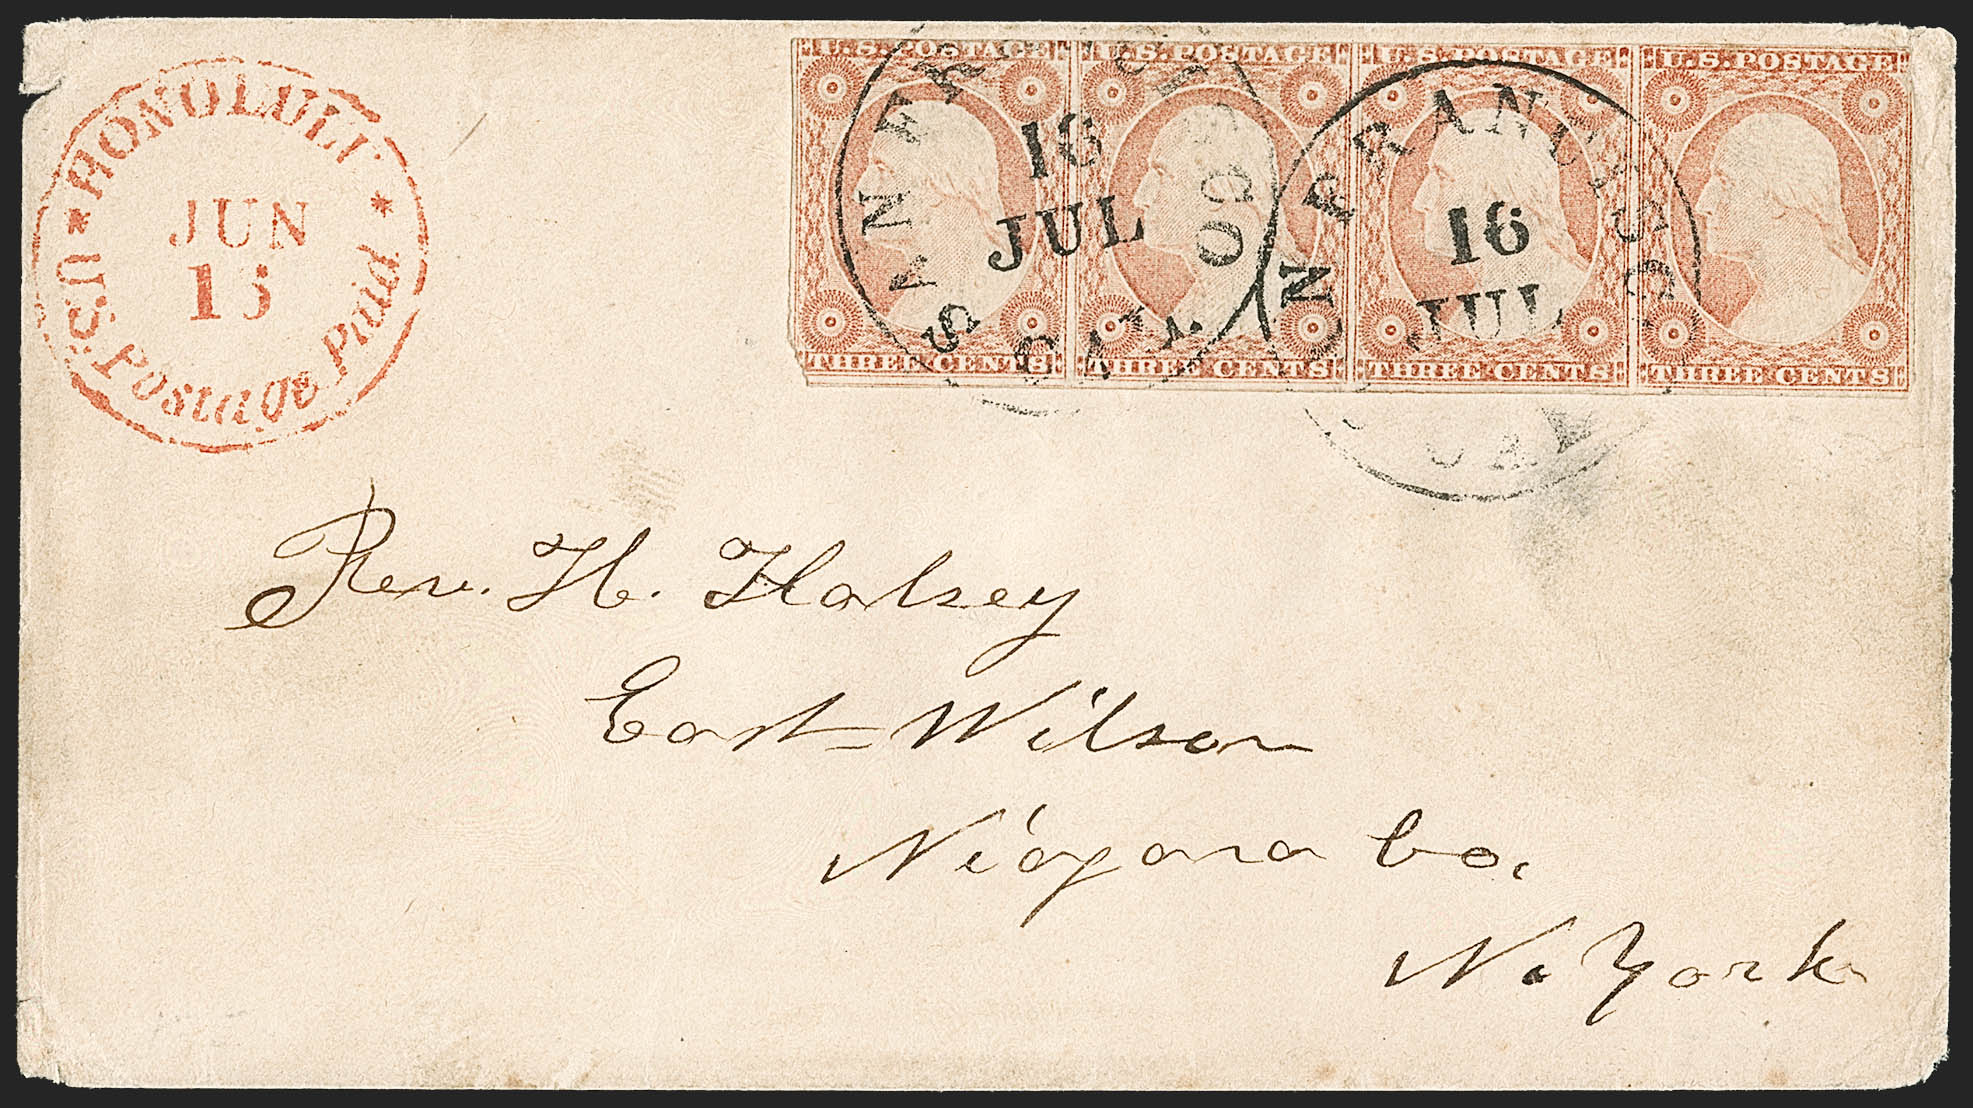 HONOLULU
U.S. Postage Paid
JUN
15
U.S. POSTAGE U.S. POSTAGE U.S. POSTAGE U.S. POSTAGE
SAN FRANCISCO
16
JUL
CAL.
SAN FRANCISCO
16
JUL
CAL
THREE CENTS THREE CENTS THREE CENTS THREE CENTS
Rev. H. Halsey
East-Wilson
Niagara Co.
N. York